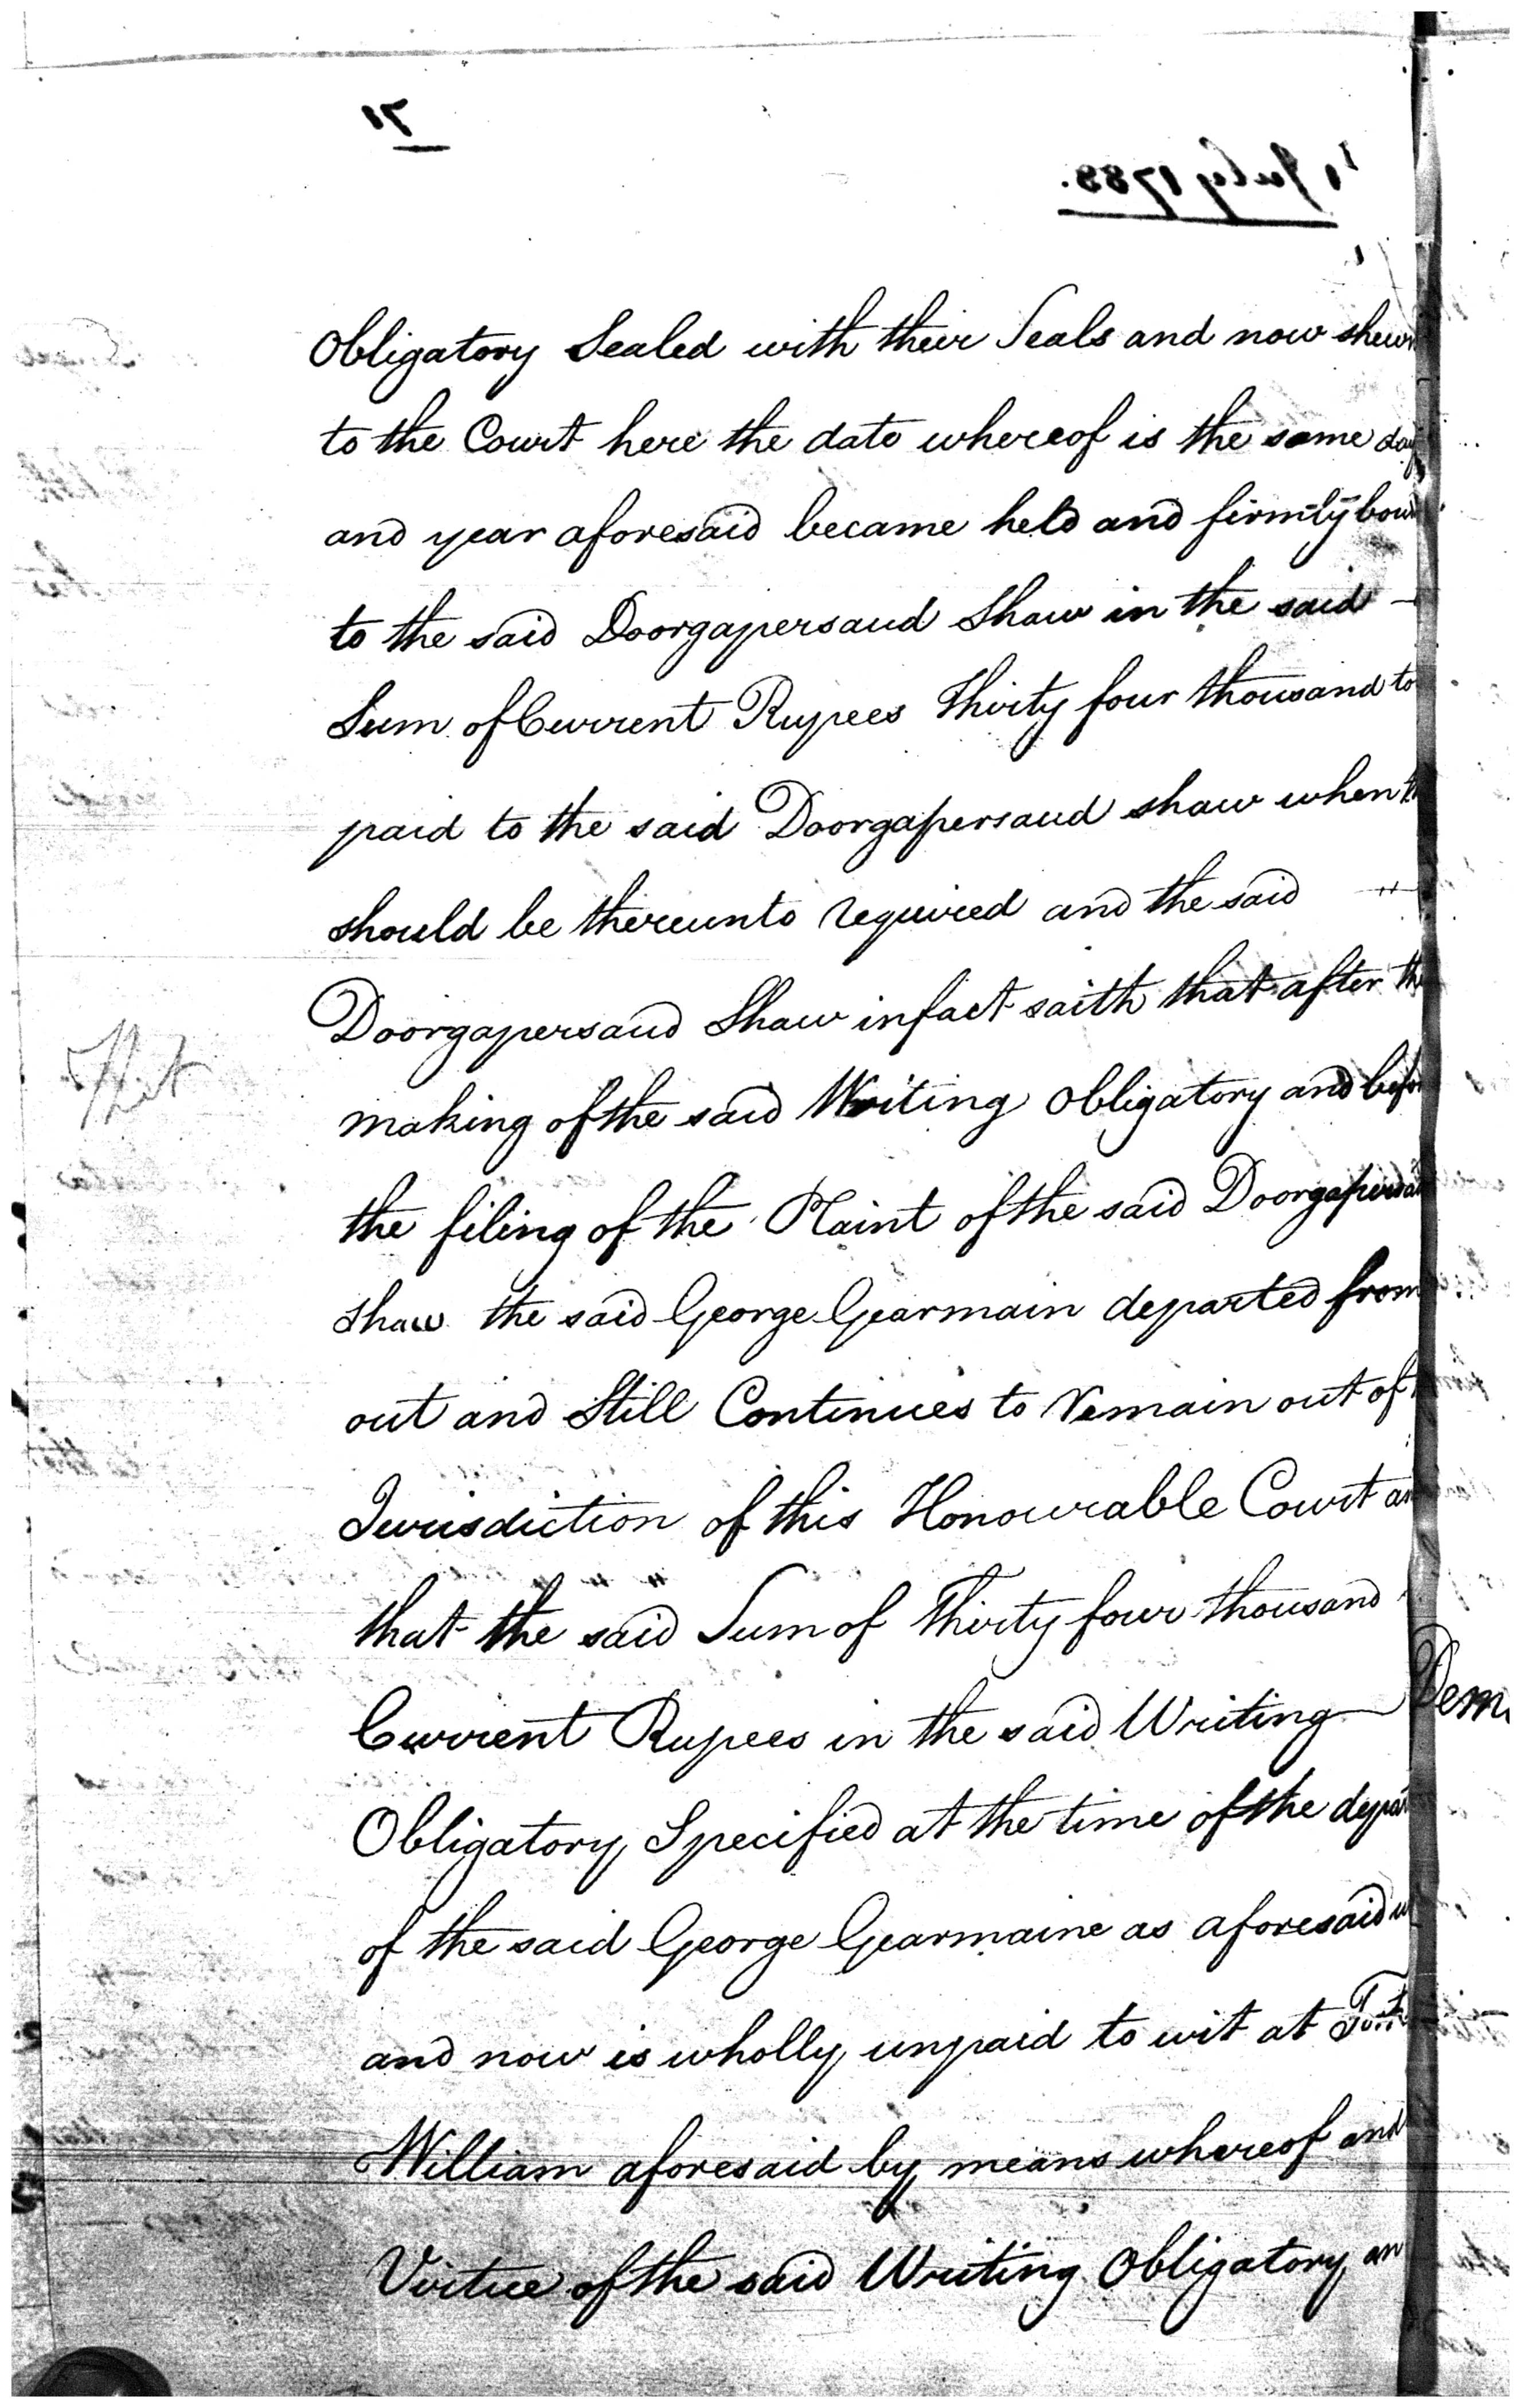 Obligatory Sealed with their Seals and now shewn
to the Court here the date whereof is the same day
and year aforesaid became held and firmly bou
to the said Doorgapersaud Shaw in the said
Sum of Current Rupees Thirty four thousand to
paid to the said Doorgapersaud Shaw when th
should be thereunto required and the said
Doorgapersaud Shaw infact saith that after the
making of the said Writing Obligatory and befo
the filing of the Plaint of the said Doorgapersau
Shaw the said George Gearmain departed from
out and Still Continues to remain out of
Jurisdiction of this Honourable Court an
that the said Sum of Thirty four thousand
Current Rupees in the said Writing
Obligatory Specified at the time of the depar
of the said George Gearmaine as aforesaid w
and now is wholly unpaid to wit at Fort
William aforesaid by means whereof and
Virtue of the said Writing Obligatory an